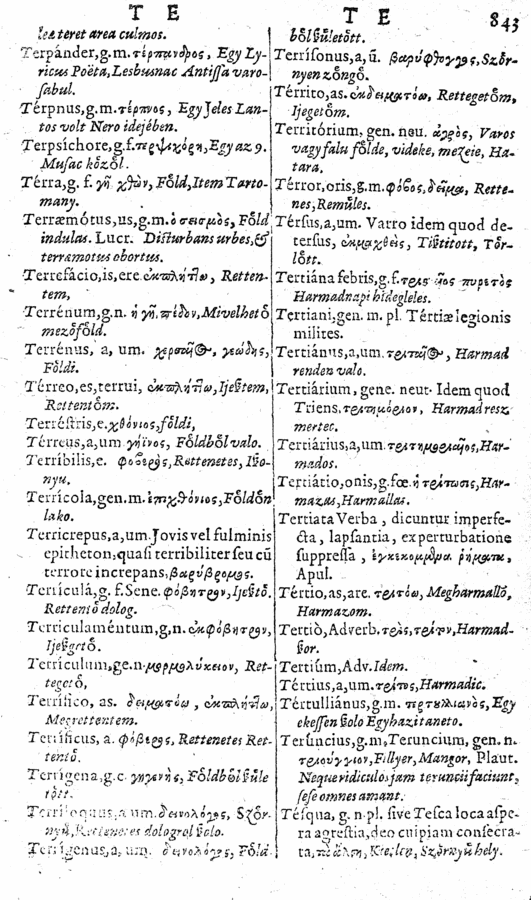 T E
T E 843
les teret area culmos.
Terpánder, g.m. τέρπανδρος, Egy Ly-
ricus Poëta, Lesbusnac Antissa varo-
sabul.
Térpnus, g.m. τέρπνος, Egy Jeles Lan-
tos volt Nero idejében.
Terpsíchore, g. f. τερψιχόρη, Egy az 9.
Musac kőzől.
Térra, g. f. γῆ χθὼν, Főld, Item Tarto-
many.
Terræmótus, us, g.m. ὁ σεισμὸς, Főld
indulas. Lucr. Disturbans urbes, &
terramotus obortus.
Terrefácio, is, ere ἐκπλήττω, Retten-
tem,
Terrénum, g.n. ἡ γῆ, πέδον, Mivelhető
mezőfőld.
Terrénus, a, um. χερσαῖος, γεώδης,
Főldi.
Térreo, es, terrui, ἐκπλήττω, Ijeßtem,
Rettentőm.
Terréstris, e. χθόνιος, főldi,
Térreus, a, um γήϊνος, Főldből valo.
Terríbilis, e. φοβερὸς, Rettenetes, Ißo-
nyu.
Terrícola, gen. m. ἐπιχθόνιος, Főldőn
lako.
Terricrepus, a, um. Jovis vel fulminis
epitheton, quasi terribiliter seu cū
terrore increpans, βαρύβρομος.
Terriculá, g. f. Sene. φόβητρον, Ijeßtő.
Rettentő dolog.
Terriculaméntum, g, n. ἐκφόβητρον,
Ijeßgető.
Terrículum, ge. n. μορμολύκειον, Ret-
tegető,
Terrífico, as. δειματόω, ἐκπλήττω,
Megrettentem.
Terríficus, a. φόβερος, Rettenetes Ret-
tentő.
Terrígena, g.c. γηγενὴς, Főldből ßűle
tőtt.
Terriloquus, a um. δεινολόγος, Szőr-
nyű, Rettenetes dologrol ßolo.
Terrígenus, a, um. δεινολόγος, Főld
ből ßűletőtt.
Terrísonus, a, ū. βαρύφθογγος, Szőr-
nyen zőngő.
Térrito, as. ἐκδειματόω, Rettegetőm,
Ijegetőm.
Territórium, gen. neu. ἀγρὸς, Varos
vagy falu főlde, videke, mezeie, Ha-
tara.
Térror, oris, g.m. φόβος, δεῖμα, Rette-
nes, Reműles.
Térsus, a, um. Varro idem quod de-
tersus, ἐκμαχθεὶς, Tißtitott, Tőr-
lőtt.
Tertiána febris, g. f. πυρετὸς
Harmadnapi hidegleles.
Tertiani, gen. m. pl. Tértiæ legionis
milites.
Tertiánus, a, um. τριταῖος, Harmad
renden valo.
Tertiárium, gene. neut. Idem quod
Triens. τριτημόριον, Harmad resz
mertec.
Tertiárius, a, um. τριτημοριαῖος, Har-
mados.
Tertiátio, onis, g. fœ. ἡ τρίτωσις, Har-
mazas, Harmallas.
Tertiata Verba, dicuntur imperfe-
cta, lapsantia, ex perturbatione
suppressa, ῥήματα,
Apul.
Tértio, as, are. τριτόω, Megharmallő,
Harmazom.
Tertiò, Adverb. τρὶς, τρίτον, Harmad-
ßor.
Tertiúm, Adv. Idem.
Tértius, a, um. τρίτος, Harmadic.
Tértulliánus, g.m. τερτυλλιανὸς, Egy
ekessen ßolo Egyhazi taneto.
Terúncius, g.m. Teruncium, gen. n.
τριούγγιον, Fillyer, Mangor, Plaut.
Neque ridiculos jam teruncii faciunt,
sese omnes amant.
Tésqua, g. n. pl. sive Tesca loca aspe-
ra agrestia, deo cuipiam consecra-
ta, Szőrnyű hely.